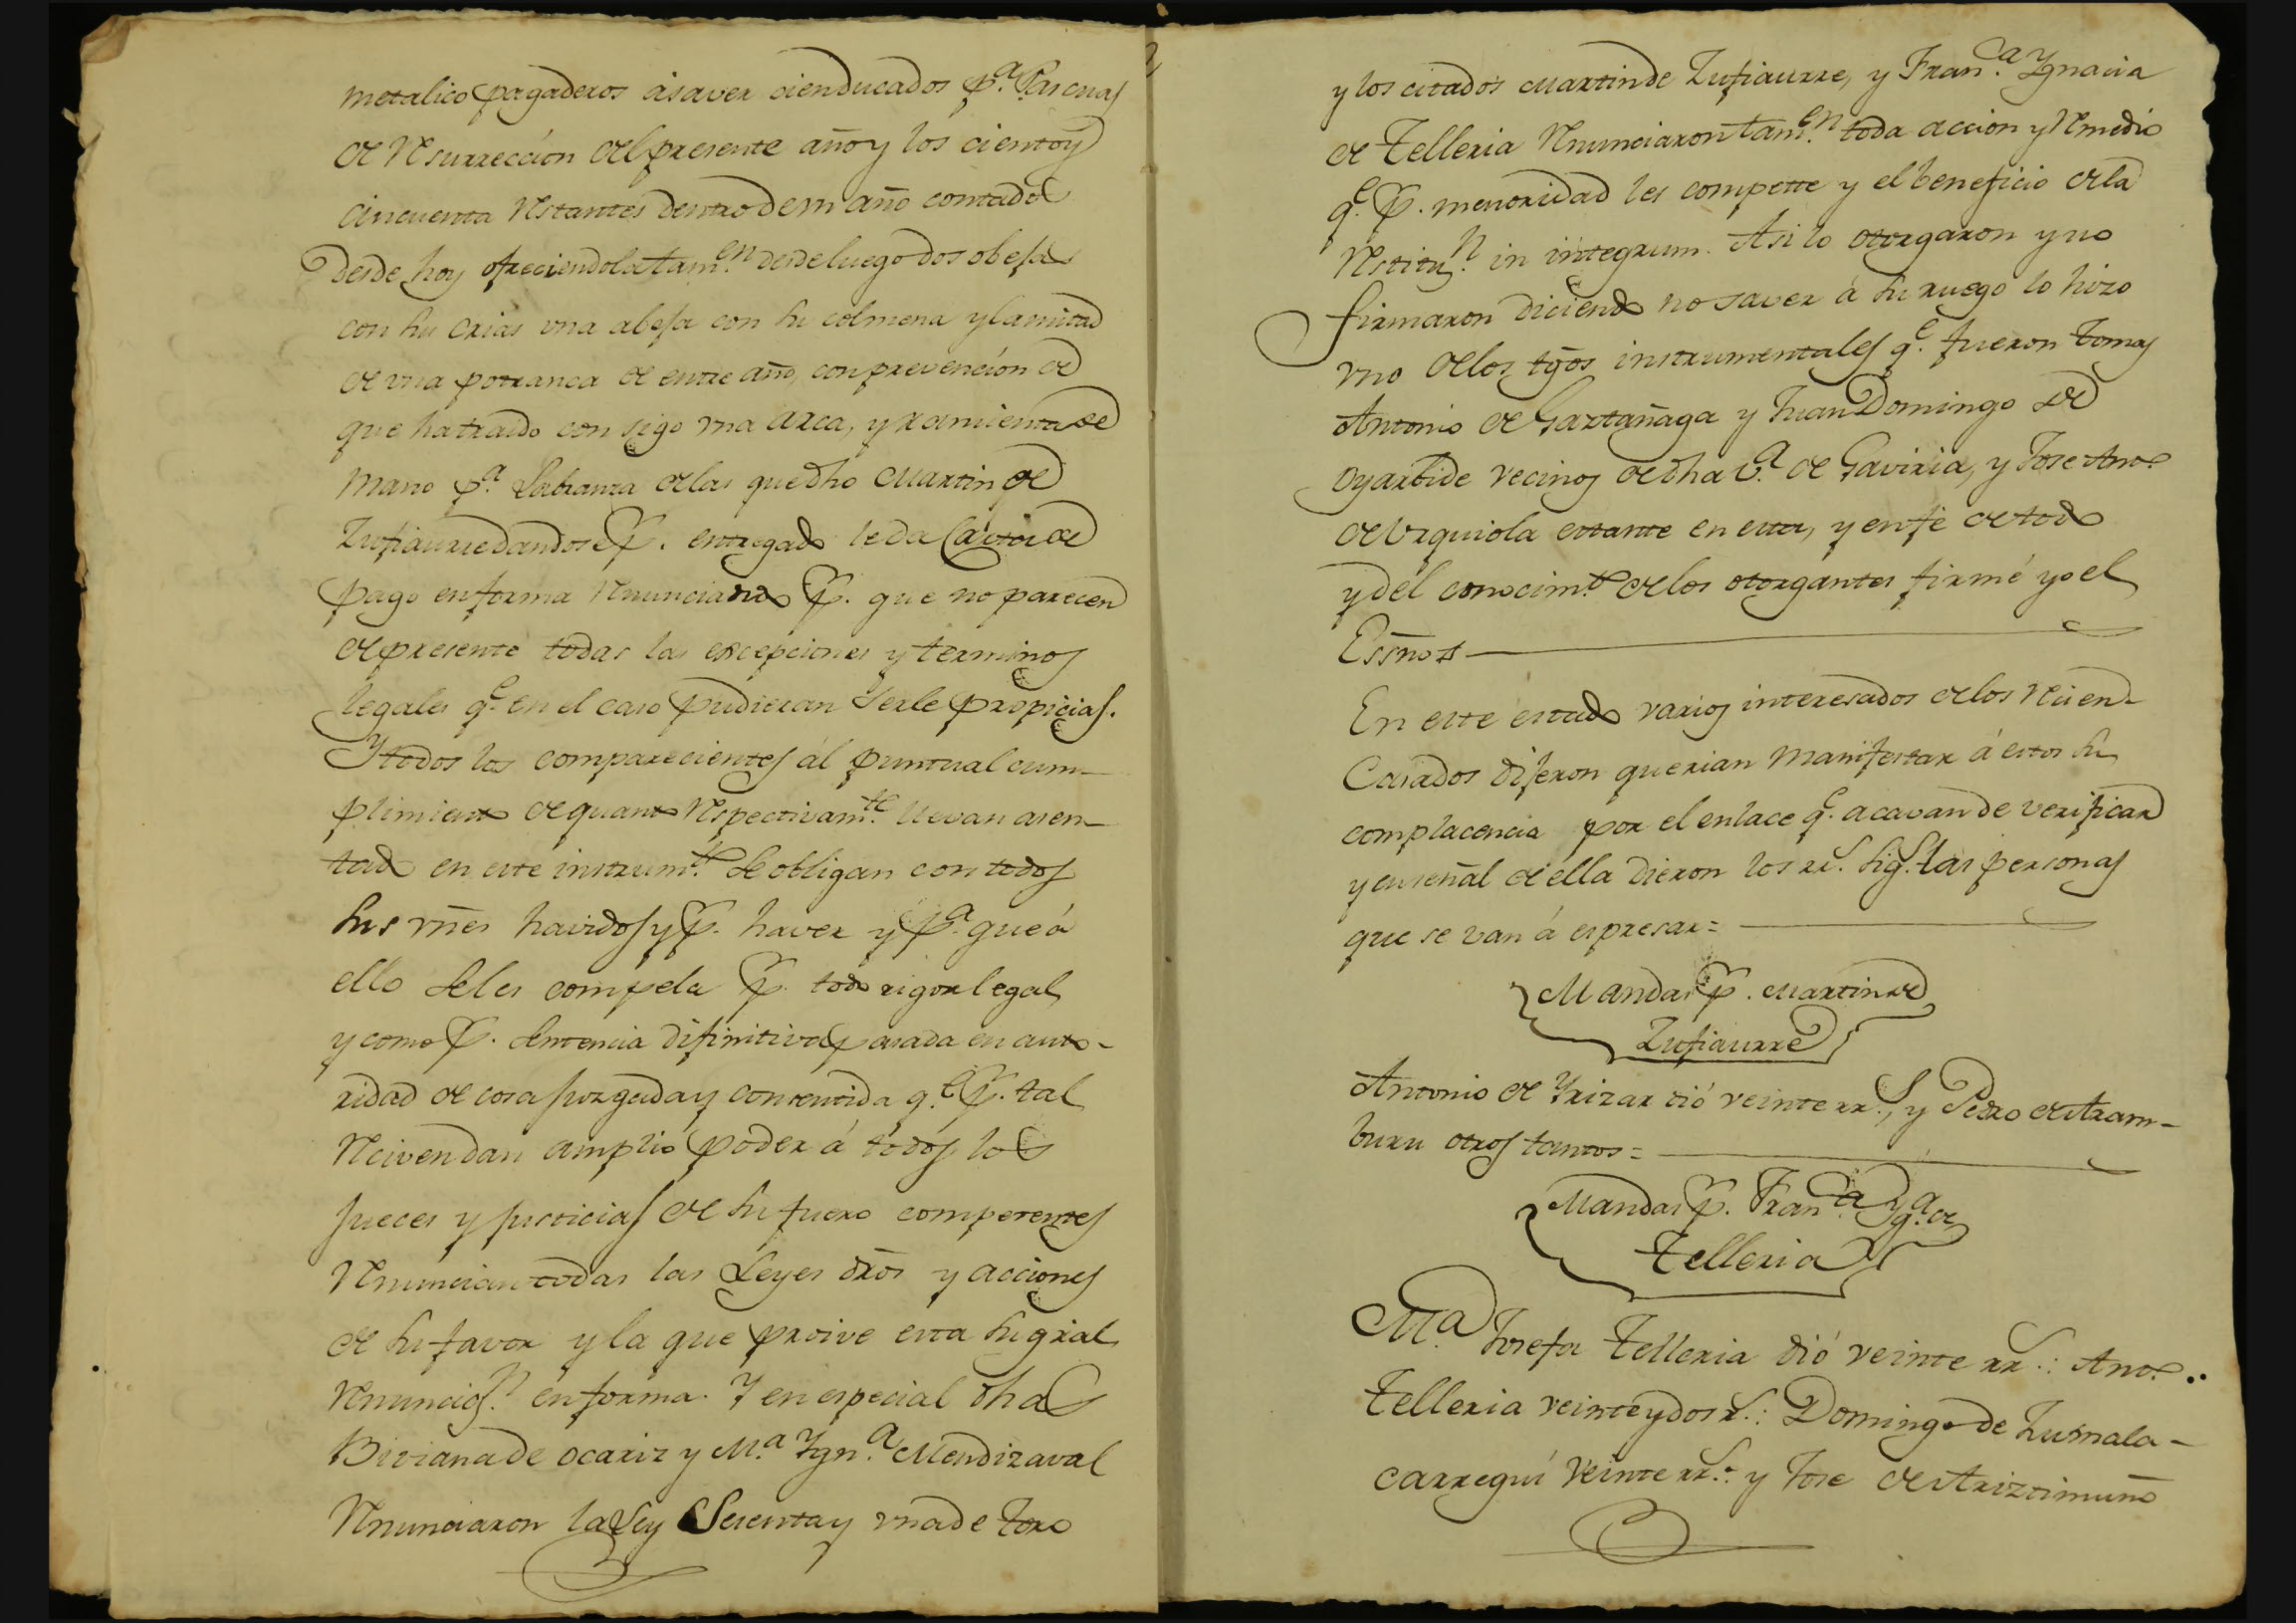 metalico pagaderos asaver cienducados p.ª Pascuas
de Resurrección del presente año y los ciento y
cincuenta restantes dentro de un año contado
desde hoy ofreciendola tam.en desde luego dos obejas
con su crias una abeja con su colmena y la mitad
de una potranca de entre año, con prevención de
que ha traido con sigo una arca, y ramienta de
mano p.ª Labranza de las que dho Martin de
Zufiaurre dandose p.r entregado le da Carta de
pago en forma renunciando p.r que no parecen
de presente todas las excepciones y terminos
legales q.e en el caso pudieran serle propicias.
Y todos los comparecientes ál puntual cum-
plimiento de quanto respectivam.te llevan asen-
tado en este instrum.to se obligan con todos
sus vñes havidos y p.r haver y p.ª que á
ello se les compela p.r todo rigor legal,
y como p.r sentencia difinitiva pasada en auto-
ridad de cosa juzgada y consentida q.e p.r tal
reciven dan amplio poder á todos los
jueces y justicias de su fuero competentes
renuncian todas las Leyes dr̃os y acciones
de su favor y la que proive esta su gr̃al
renunciaz.n en forma. Y en especial dhas
Biviana de ocariz y M.ª Ygn.ª Mendizaval
renunciaron la Ley sesenta y una de toro
y los citados Martin de Zufiaurre, y Fran.ca Ygnacia
de Telleria renunciaron tam.en toda accion y remedio
q.e p.r menoridad les compette y el beneficio de la
restitu.n in integrum. Asi lo otorgaron y no
firmaron diciendo no saver á su ruego lo hizo
uno de los tgõs instrumentales q.e fueron tomas
Antonio de Gaztañaga y Juan Domingo de
oyarbide vecinos de dha v.ª de Gaviria, y Jose Ant.o
de Urquiola estante en esta, y en fé de todo
y del conocim.to de los otorgantes firmé yo el
Essño#
En este estado varios interesados de los recien
Casados dijeron querian manifestar á estos su
complacencia por el enlace q.e acavan de verificar
y en señal de ella dieron los rr.s sig.s las personas
que se van á espresar=
Mandas p.r Martin de
Zufiaurre
Antonio de Yrizar dió veinte rr.s, y Pedro de Aram-
buru otros tantos=
Mandas p.r Fran.ca Yg.ª de
Telleria
M.ª Josefa Telleria dió veinte rr.s: Ant.o
Telleria veinte y dos r.s: Domingo de Zumala-
carregui veinte rr.s: y Jose de Ariztimuño